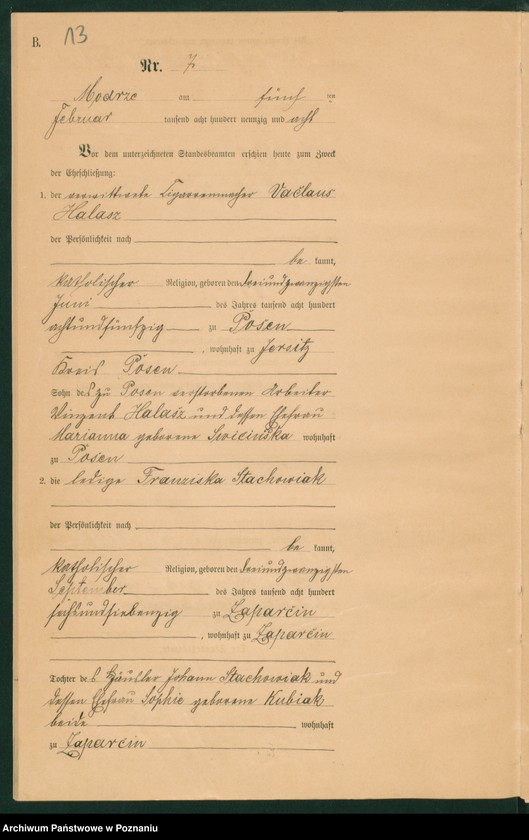 B. 13
Nr. 7.
Modrze am fünf ten
Februar tausend acht hundert neunzig und acht
Vor dem unterzeichneten Standesbeamten erschien heute zum Zweck
der Eheschließung:
1. der verwittwete Cigarrenmacher Vačlaus
Halasz
der Persönlichkeit nach
be kannt,
katholischer Religion, geboren den dreiundzwanzigsten
Juni des Jahres tausend acht hundert
achtundfünfzig zu Posen
, wohnhaft zu Jersitz
Kreis Posen
Sohn des zu Posen verstorbenen Arbeiter
Vinzent Halasz und dessen Ehefrau
Marianna geborene wohnhaft
zu Posen
2. die ledige Franziska Stachowiak
der Persönlichkeit nach
be kannt,
katholischer Religion, geboren den dreiundzwanzigsten
September des Jahres tausend acht hundert
sechsundsiebenzig zu Zaparcin
, wohnhaft zu Zaparcin
Tochter des Häusler Johann Stachowiak und
dessen Ehefrau Sophie geborene Kubiak
beide wohnhaft
zu Zaparcin
Archiwum Państwowe w Poznaniu